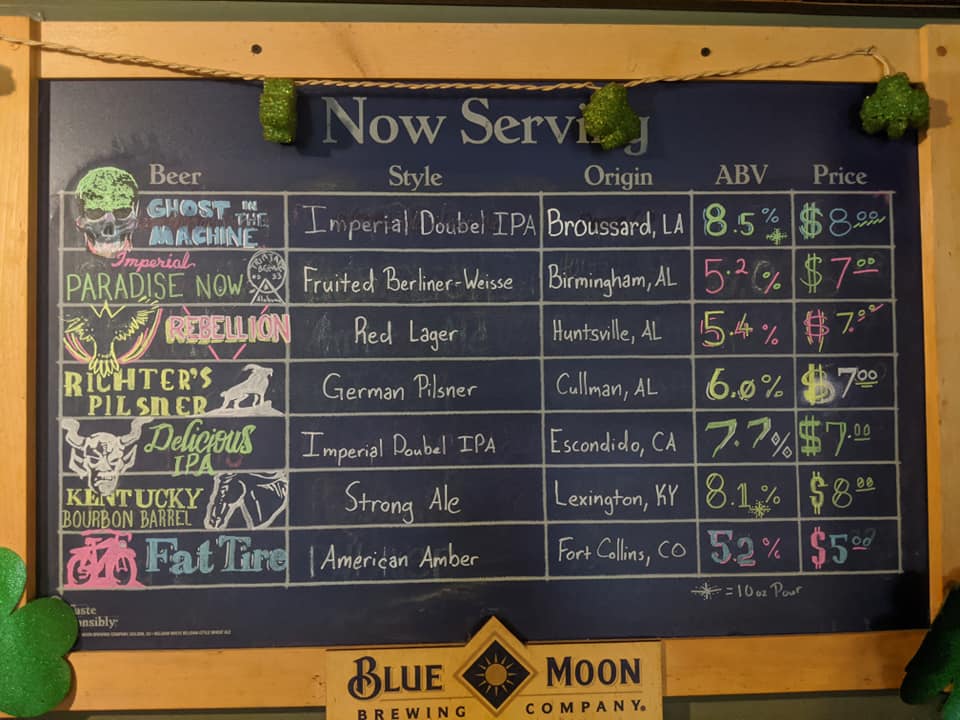 Now Serving
Beer Style Origin ABV Price
GHOST IN THE MACHINE Imperial Doubel IPA Broussard, LA 8.5% $8.00
Imperial
PARADISE NOW Fruited Berliner-Weisse Birmingham, AL 5.2% $7.00
REBELLION Red Lager Huntsville, AL 5.4% $7.00
RICHTER'S
PILSNER German Pilsner Cullman, AL 6.0% $7.00
Delicious
IPA Imperial Doubel IPA Escondido, CA 7.7% $7.00
KENTUCKY
BOURBON BARREL Strong Ale Lexington, KY 8.1% $8.00
Fat Tire American Amber Fort Collins, CO 5.2% $5.00
= 10 oz Pour
BLUE MOON
BREWING COMPANY®